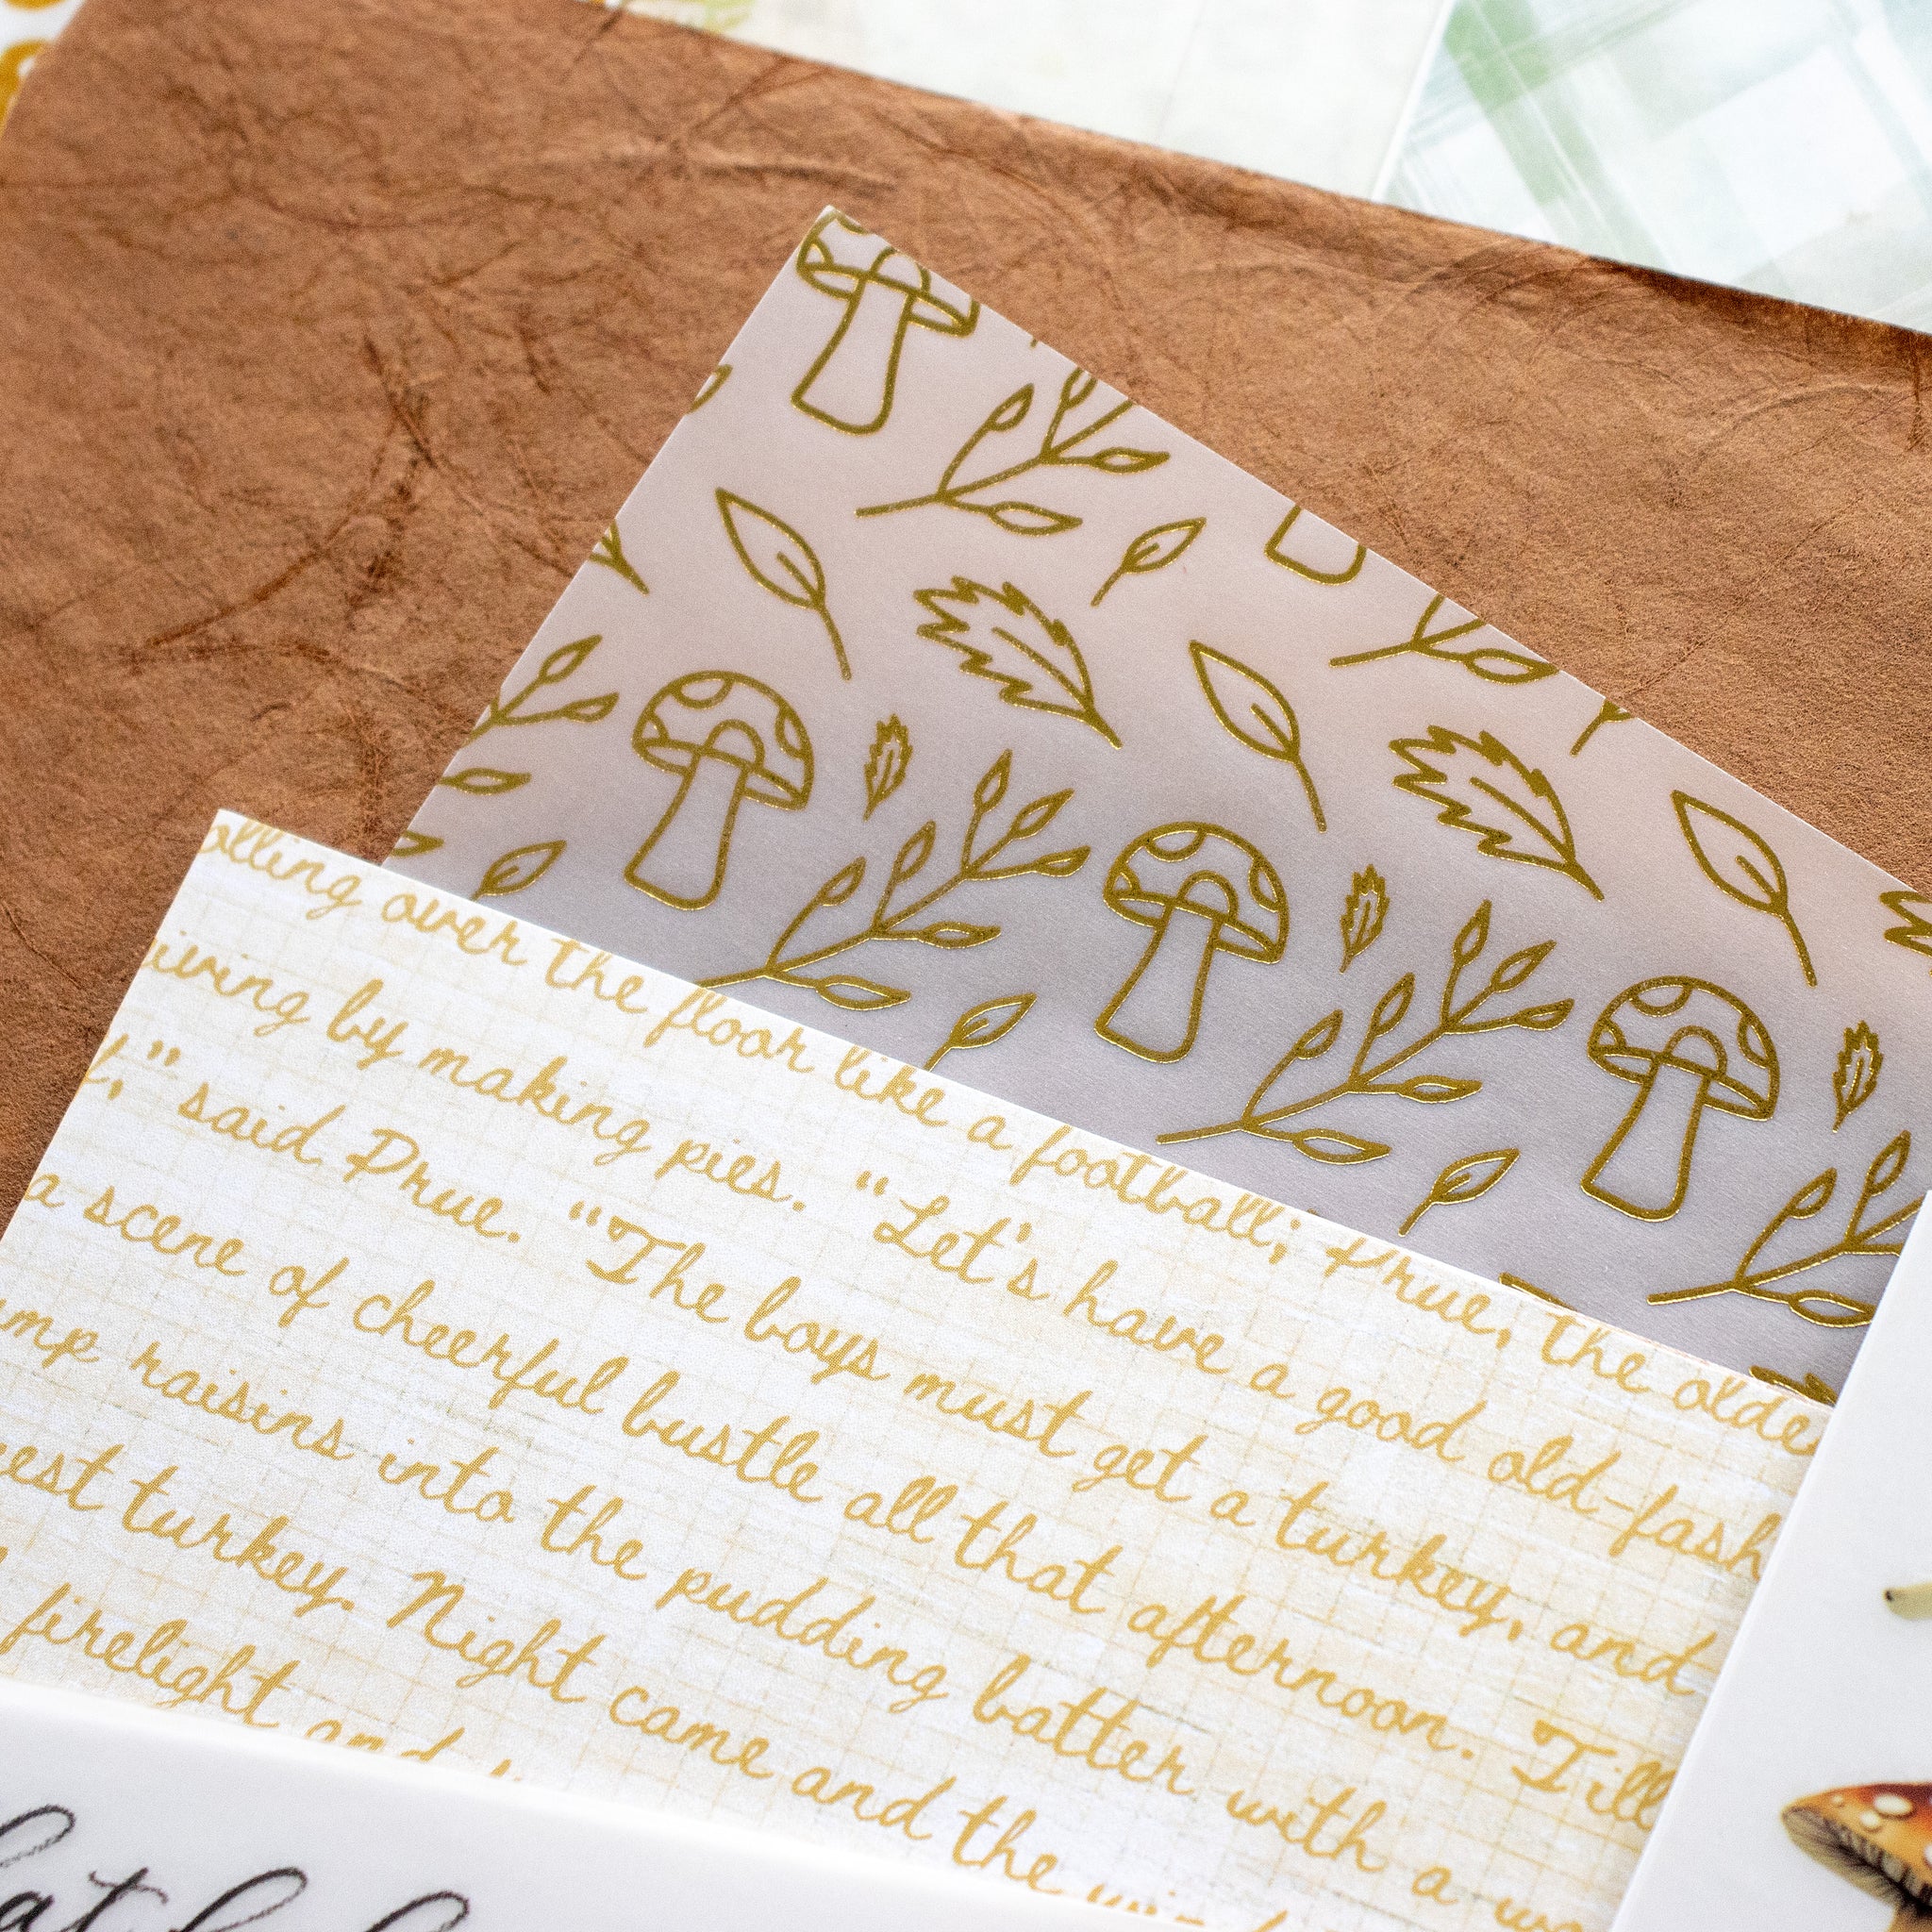 olling over the floor like a football; Prue, the olde
iving by making pies. "Let's have a good old-fash
," said Prue. "The boys must get a turkey, and
a scene of cheerful bustle all that afternoon. Till
mp raisins into the pudding batter with a
est turkey. Night came and the
firelight and